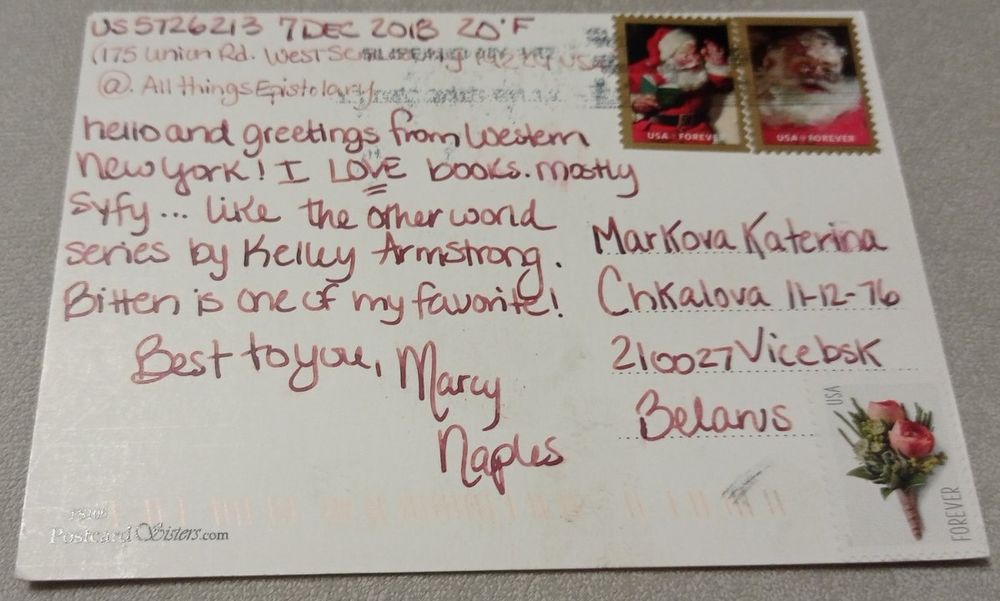 US5726213 7DEC 2018 20°F
(175 Union Rd. West
@. All things Epistolary
hello and greetings from Western
New York! I LOVE books. mostly
Syfy... like the otherworld
series by Kelley Armstrong.
Bitten is one of my favorite!
Best to you, Marcy
Naples
USA FOREVER
USA FOREVER
Markova Katerina
Chkalova 11-12-76
210027 Vicebsk
Belarus
USA
FOREVER
PostcardSisters.com